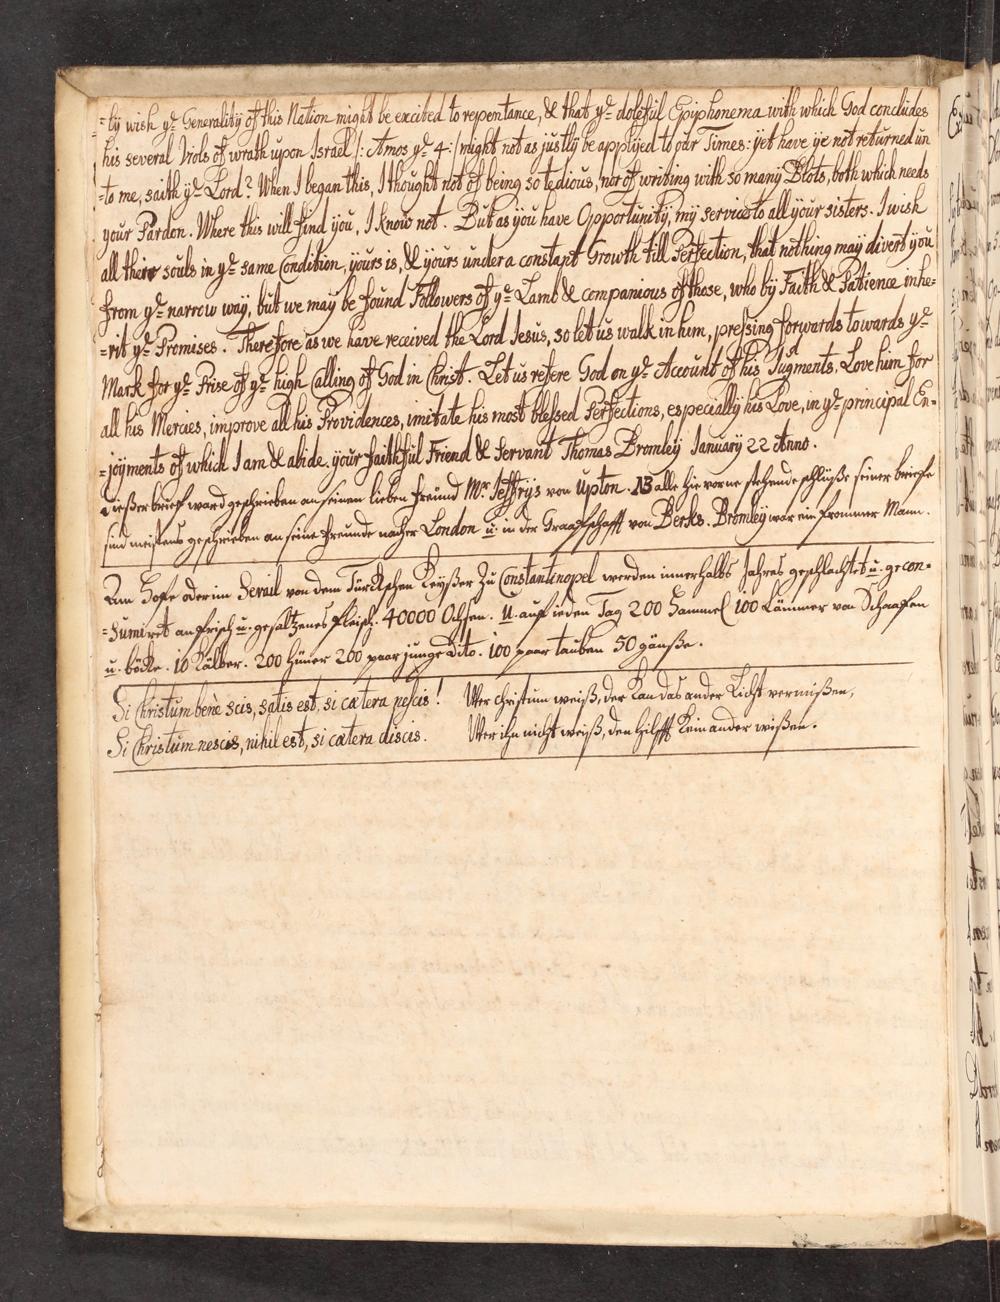 =ly wish ye Generality of this Nation might be excited to repentance, & that ye doleful Epiphonema with which God concludes
his several Viols of wrath upon Israel /: Amos ye 4 :/ might not as justly be applyed to our Times: yet have ye not returned un
=to me, saith ye Lord? When I began this, I thought not of being so tedious, nor of writing with so many Blots, both which needs
your Pardon. Where this will find you, I know not. But as you have Opportunity, my service to all your sisters. I wish
all their souls in ye same Condition, yours is, & yours under a constant Growth till Perfection, that nothing may divert you
from ye narrow way, but we may be found Followers of ye Lamb & companious of those, who by Faith & Patience inhe=
=rit ye Promises. Therefore as we have received the Lord Jesus, so let us walk in him, pressing forwards towards ye
Mark for ye Prise of ye high Calling of God in Christ. Let us refere God on ye Account of his Judgments, Love him for
all his Mercies, improve all his Providences, imitate his most blessed Perfections, especially his Love, in ye principal En=
=joyments of which I am & abide. your faithful Friend & Servant Thomas Bromley January 22 Anno.
Dießer brief ward geschrieben an seinen lieben freund Mr. Jeffrijs von Upton. NB alle hie vorne stehende schlüße seiner briefe
sind meistens geschrieben an seine freunde nacher London u. in der Graafschafft von Berks. Bromley war ein frommer Mann.
Am Hofe oder im Serail von dem Türckschen Keyßer zu Constantinopel werden innerhalb Jahres geschlachtet u. gecon=
=sumiret an frisch u. gesaltzenes fleisch. 40000 Ochsen. U. auf ieden Tag 200 Hammel 100 Lämmer von Schaafen
u. böcke. 10 Kälber. 200 hüner 200 paar junge Dito. 100 paar tauben 50 gänße.
Si Christum benè scis, satis est, si cætera nescis! Wer Christum weiß, der Kan das ander Licht vermißen,
Si Christum nescis, nihil est, si cætera discis. Wer ihn nicht weiß, den hilfft Kein ander wißen.